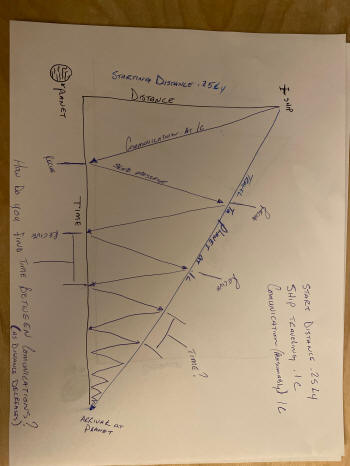 STARTING DISTANCE .25LY
DISTANCE
SHIP
PLANET
COMMUNICATION AT 1C
RECIVE
SEND MESSAGE
TRAVEL TO PLANET AT .1C
RECIVE
TIME
RECIVE
RECIVE
TIME?
ARRIVAL AT
PLANET
START DISTANCE .25LY
SHIP TRAVELING .1C
COMUNICATION 1C
HOW DO YOU FIND TIME BETWEEN COMUNICATIONS?
(AS DISTANCE DECREASES)